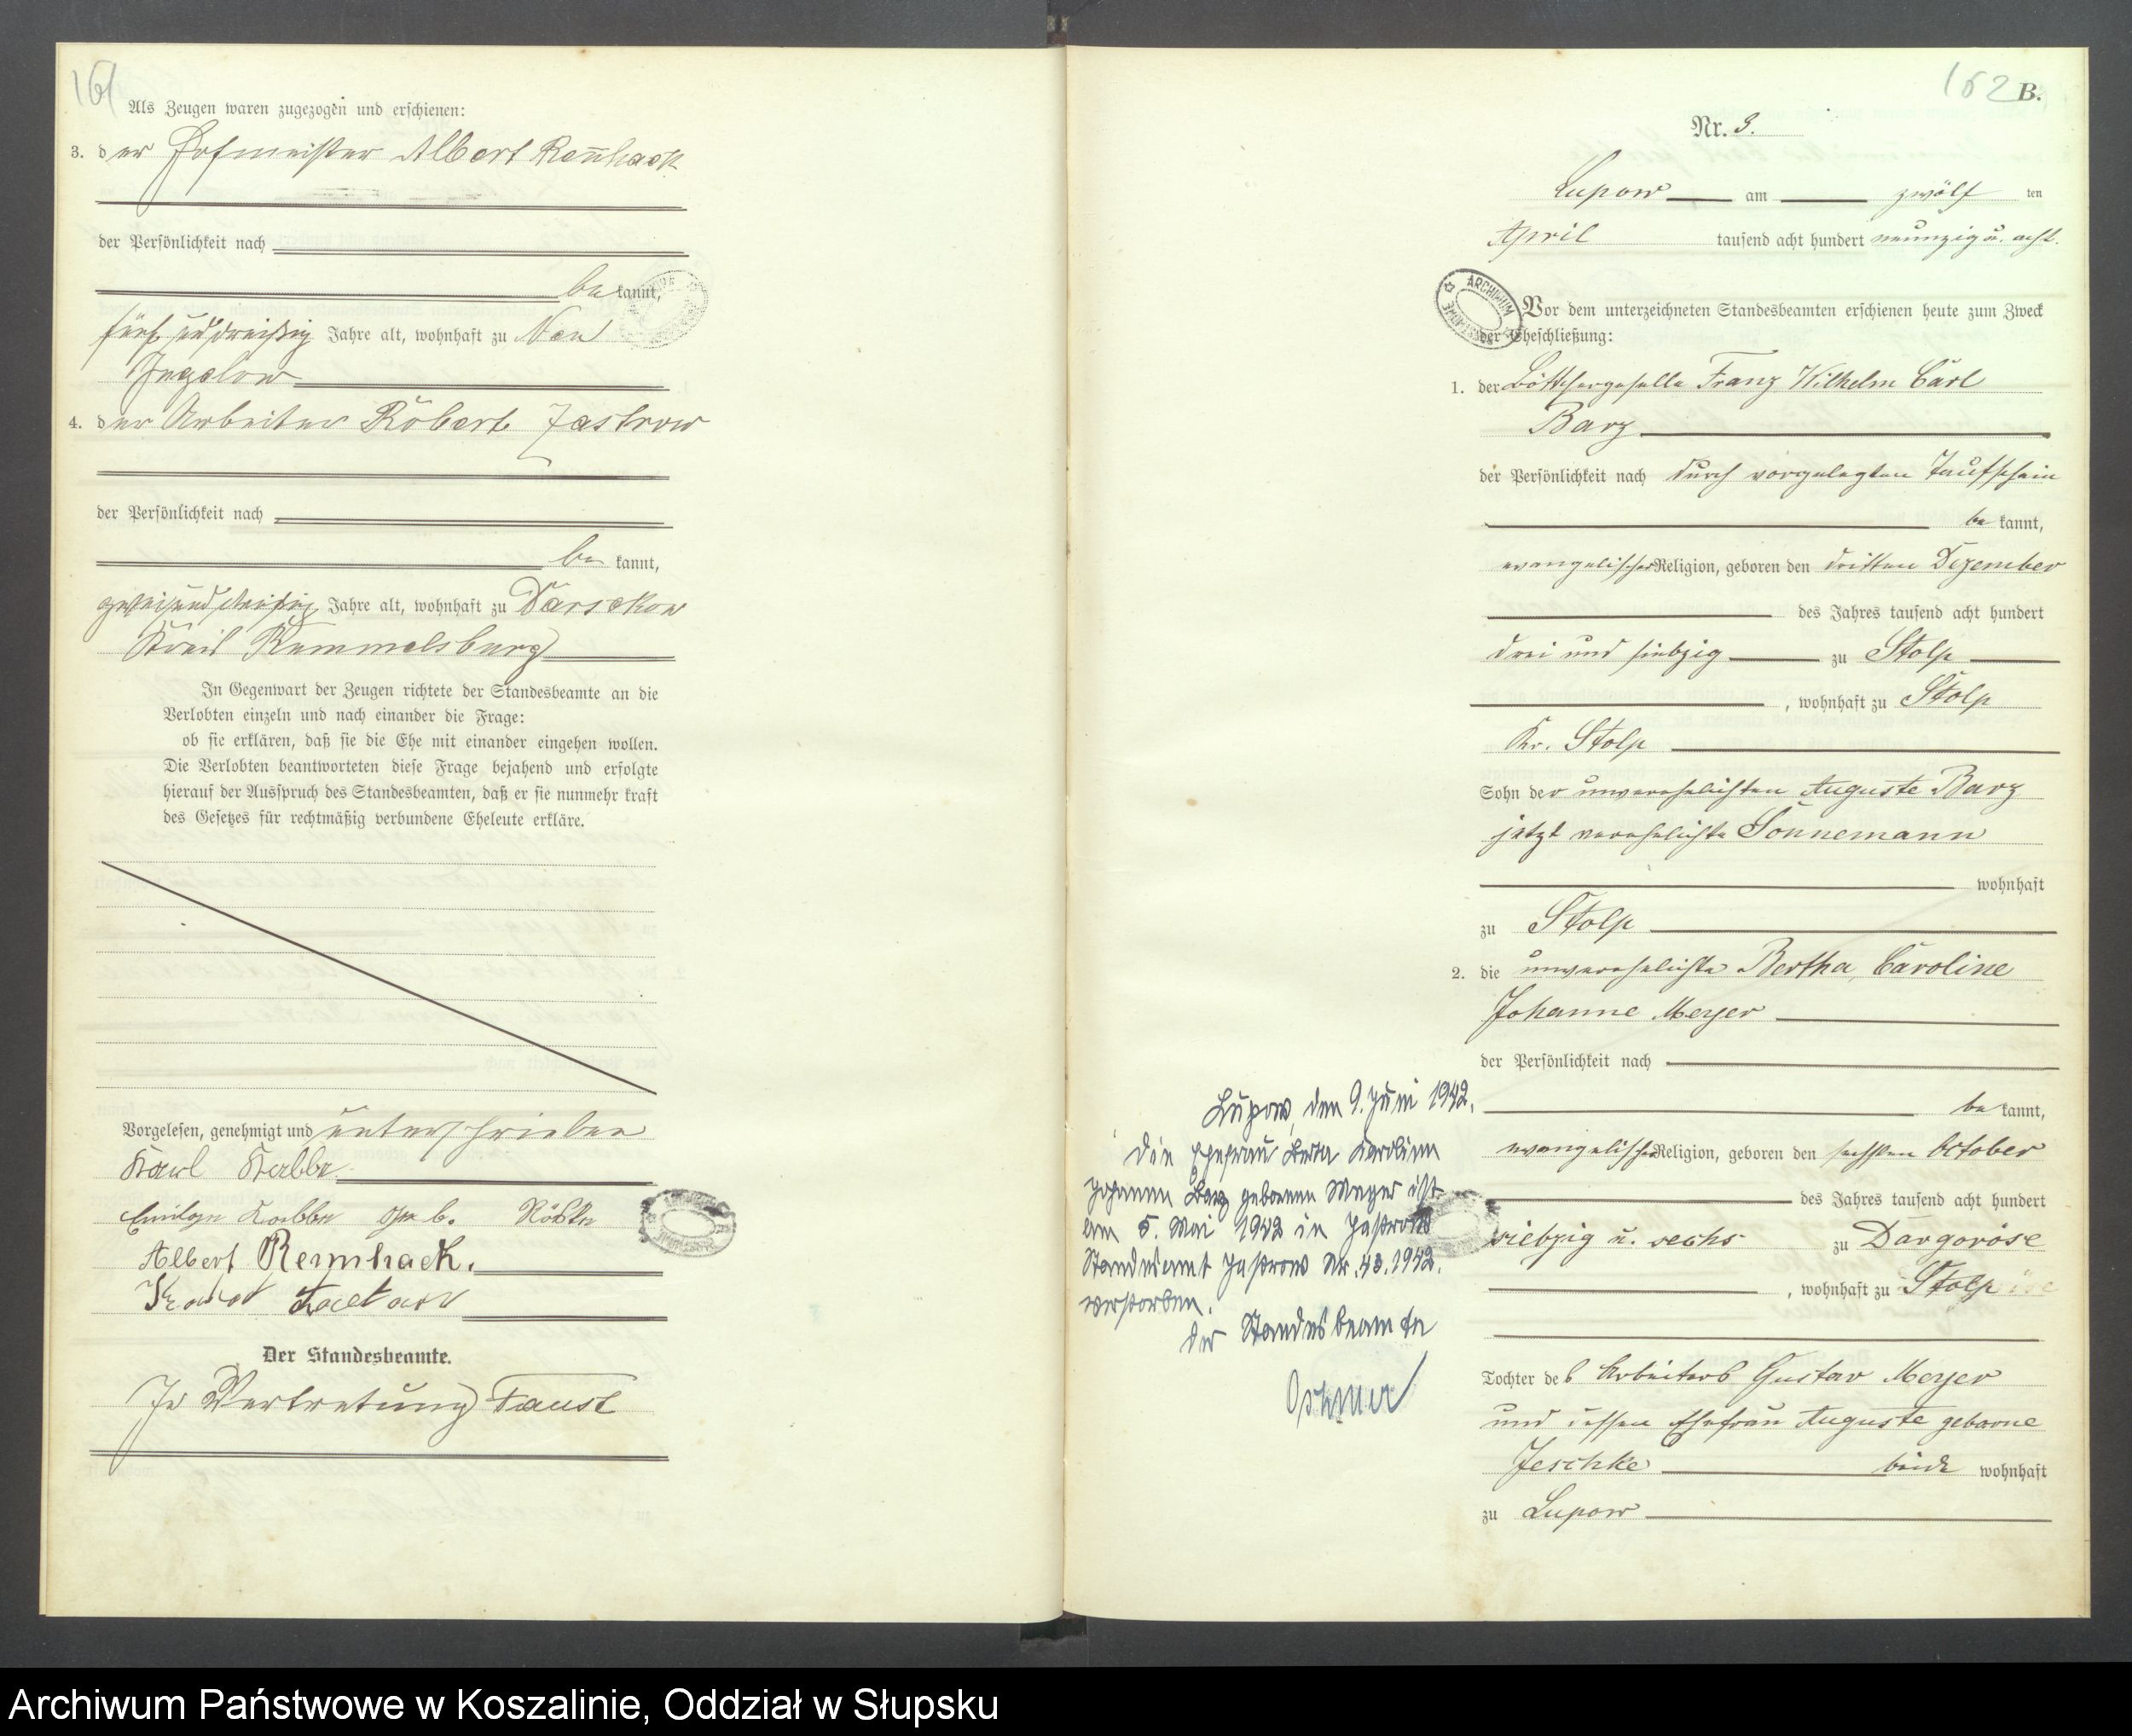 161
Als Zeugen waren zugezogen und erschienen:
3. der Hofmeister Albert Rennhack
der Persönlichkeit nach
be kannt,
fünf und dreißig Jahre alt, wohnhaft zu Neu
Jugelow
4. der Arbeiter Robert Jastrow
der Persönlichkeit nach
be kannt,
zwei und dreißig Jahre alt, wohnhaft zu Darsekow
Kreis Rummelsburg
In Gegenwart der Zeugen richtete der Standesbeamte an die
Verlobten einzeln und nach einander die Frage:
ob sie erklären, daß sie die Ehe mit einander eingehen wollen.
Die Verlobten beantworteten diese Frage bejahend und erfolgte
hierauf der Ausspruch des Standesbeamten, daß er sie nunmehr kraft
des Gesetzes für rechtmäßig verbundene Eheleute erkläre.
Vorgelesen, genehmigt und unterschrieben
Karl Kabbe
Kabbe geb.
Albert Rennhack.
Der Standesbeamte.
In Vertretung Faust
162 B.
Nr. 9.
Lupow am zwölf ten
April tausend acht hundert neunzig u. acht.
ARCHIWUM
Vor dem unterzeichneten Standesbeamten erschienen heute zum Zweck
der Eheschließung:
1. der Böttchergeselle Franz Wilhelm Carl
Barz
der Persönlichkeit nach durch vorgelegten Taufschein
be kannt,
evangelischer Religion, geboren den dritten Dezember
des Jahres tausend acht hundert
drei und siebzig zu Stolp
, wohnhaft zu Stolp
Kr. Stolp
Sohn der unverehelichten Auguste Barz
jetzt verehelichte Sonnemann
wohnhaft
zu Stolp
2. die unverehelichte Bertha Caroline
Johanne Meyer
der Persönlichkeit nach
be kannt,
evangelischer Religion, geboren den sechsten October
des Jahres tausend acht hundert
siebzig u. sechs zu Dargoröse
, wohnhaft zu Stolp
Tochter des Arbeiters Gustav Meyer
und dessen Ehefrau Auguste geborne
Jeschke beide wohnhaft
zu Lupow
Lupow, den 9. Juni 1942.
Die Ehefrau Berta Karoline
Johanne Barz geborene Meyer ist
am 5. Mai 1942 in Jastrow
Standesamt Jastrow Nr. 43.1942.
verstorben.
Der Standesbeamte
Archiwum Państwowe w Koszalinie, Oddział w Słupsku